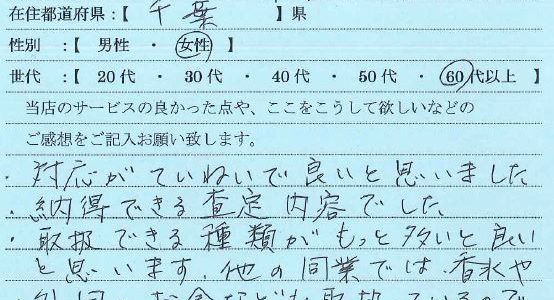 在住都道府県:【 千葉 】県
性別 :【 男性 ・ 女性 】
世代 :【 20代 ・ 30代 ・ 40代 ・ 50代 ・ 60代以上 】
当店のサービスの良かった点や、ここをこうして欲しいなどの
ご感想をご記入お願い致します。
・対応がていねいで良いと思いました
・納得できる査定内容でした
・取扱できる種類がもっと多いと良い
と思います。他の同業では、香水や